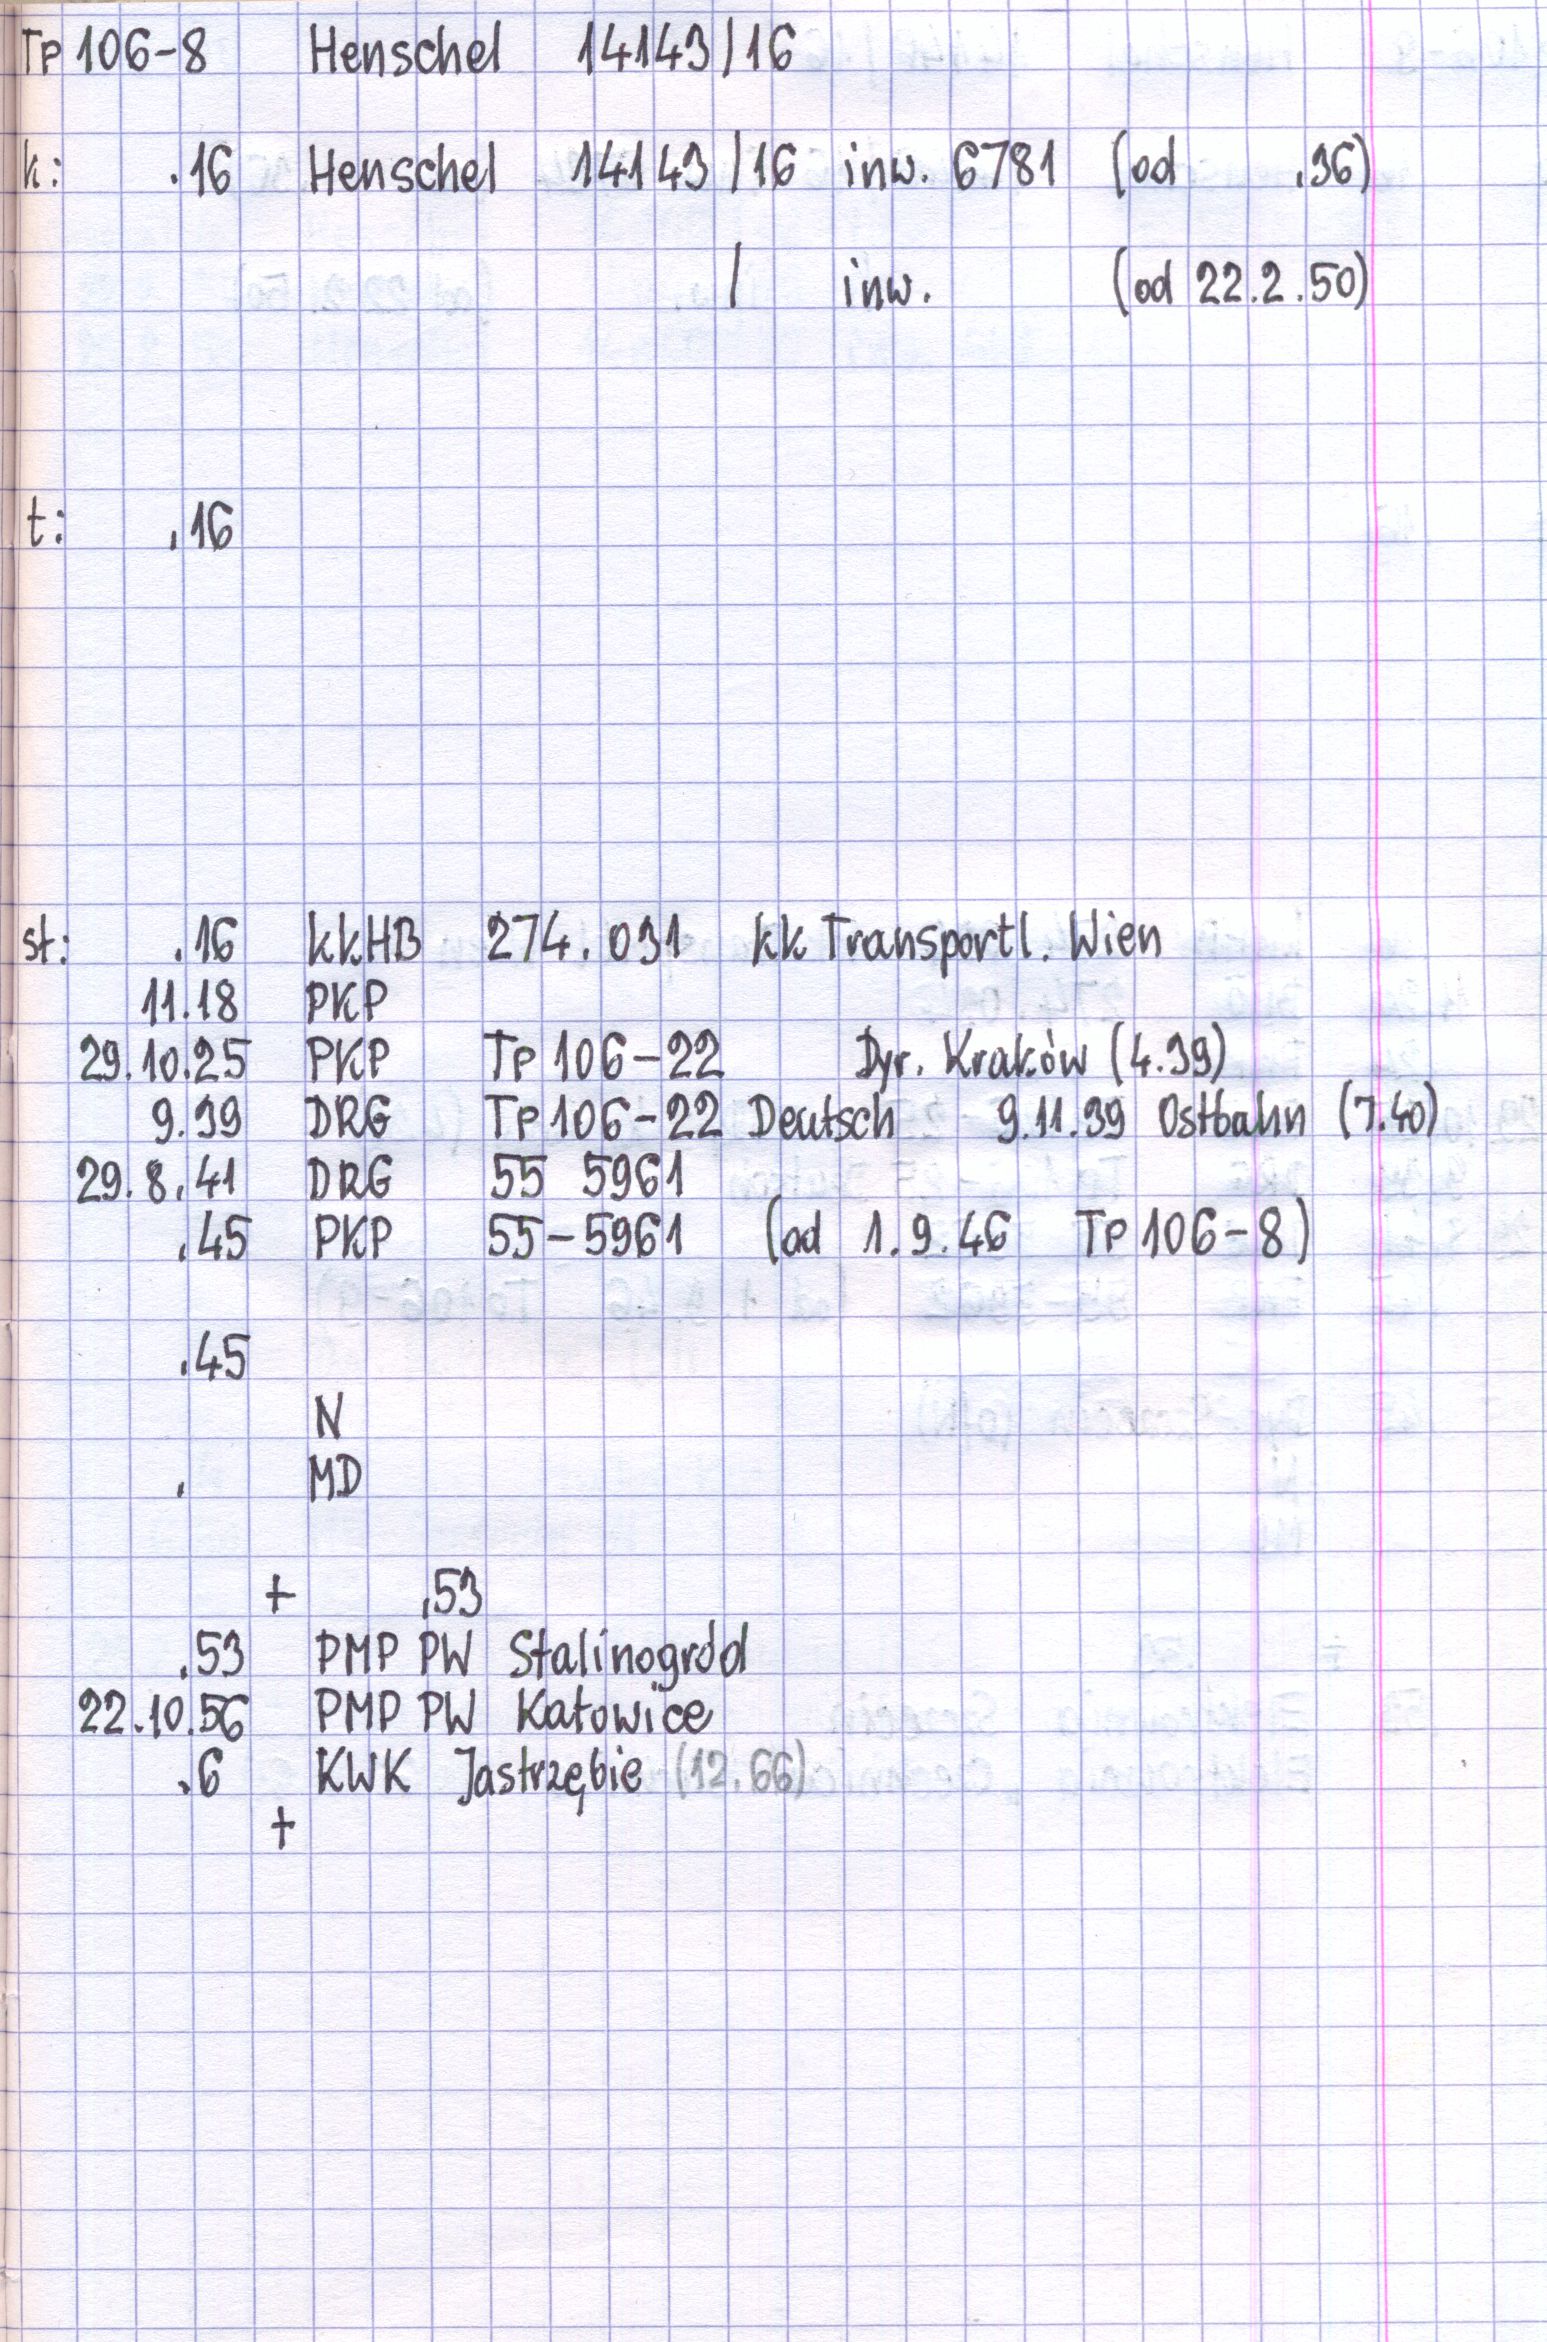 Tp 106-8 Henschel 14143/16
k: .16 Henschel 14143/16 inw. 6781 (od .36)
/ inw. (od 22.2.50)
t: .16
st: .16 kkHB 274.031 kk Transportl. Wien
11.18 PKP
29.10.25 PKP Tp 106-22 Dyr. Kraków (4.39)
9.39 DRG Tp 106-22 Deutsch 9.11.39 Ostbahn (7.40)
29.8.41 DRG 55 5961
.45 PKP 55-5961 (od 1.9.46 Tp 106-8)
.45
N
. MD
+ .53
.53 PMP PW Stalinogród
22.10.56 PMP PW Katowice
.6 KWK Jastrzębie (12.66)
+